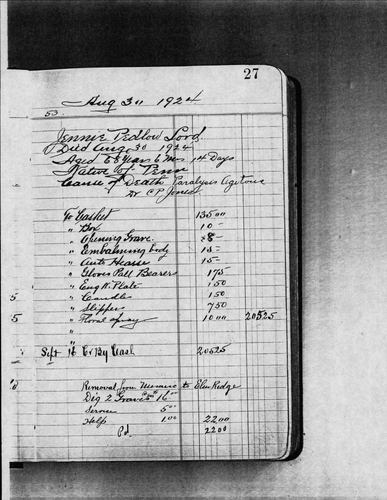 27
Aug 30 1924
53.
Jennie Pedlow Lord
Died Aug 30 1924
Aged 68 Years 6 Mos 14 Days
Native of Penn
Cause of Death Paralysis Agitans
Dr C P Jones
To Casket 135 00
" Box 10 -
" Opening Grave 8 -
" Embalming body 15 -
" Auto Hearse 15 -
" Gloves Pall Bearer 1 75
" Eng N. Plate 1 50
5 " Candles 1 50
" Slippers 7 50
5 " Floral spray 10 00 205 25
"
"
Sept 16 Cr By Cash 205 25
Removal from to Elm Ridge
Dig 2 Graves 16 00
Service 5 00
Help 1 00 22 00
Pd 22 00